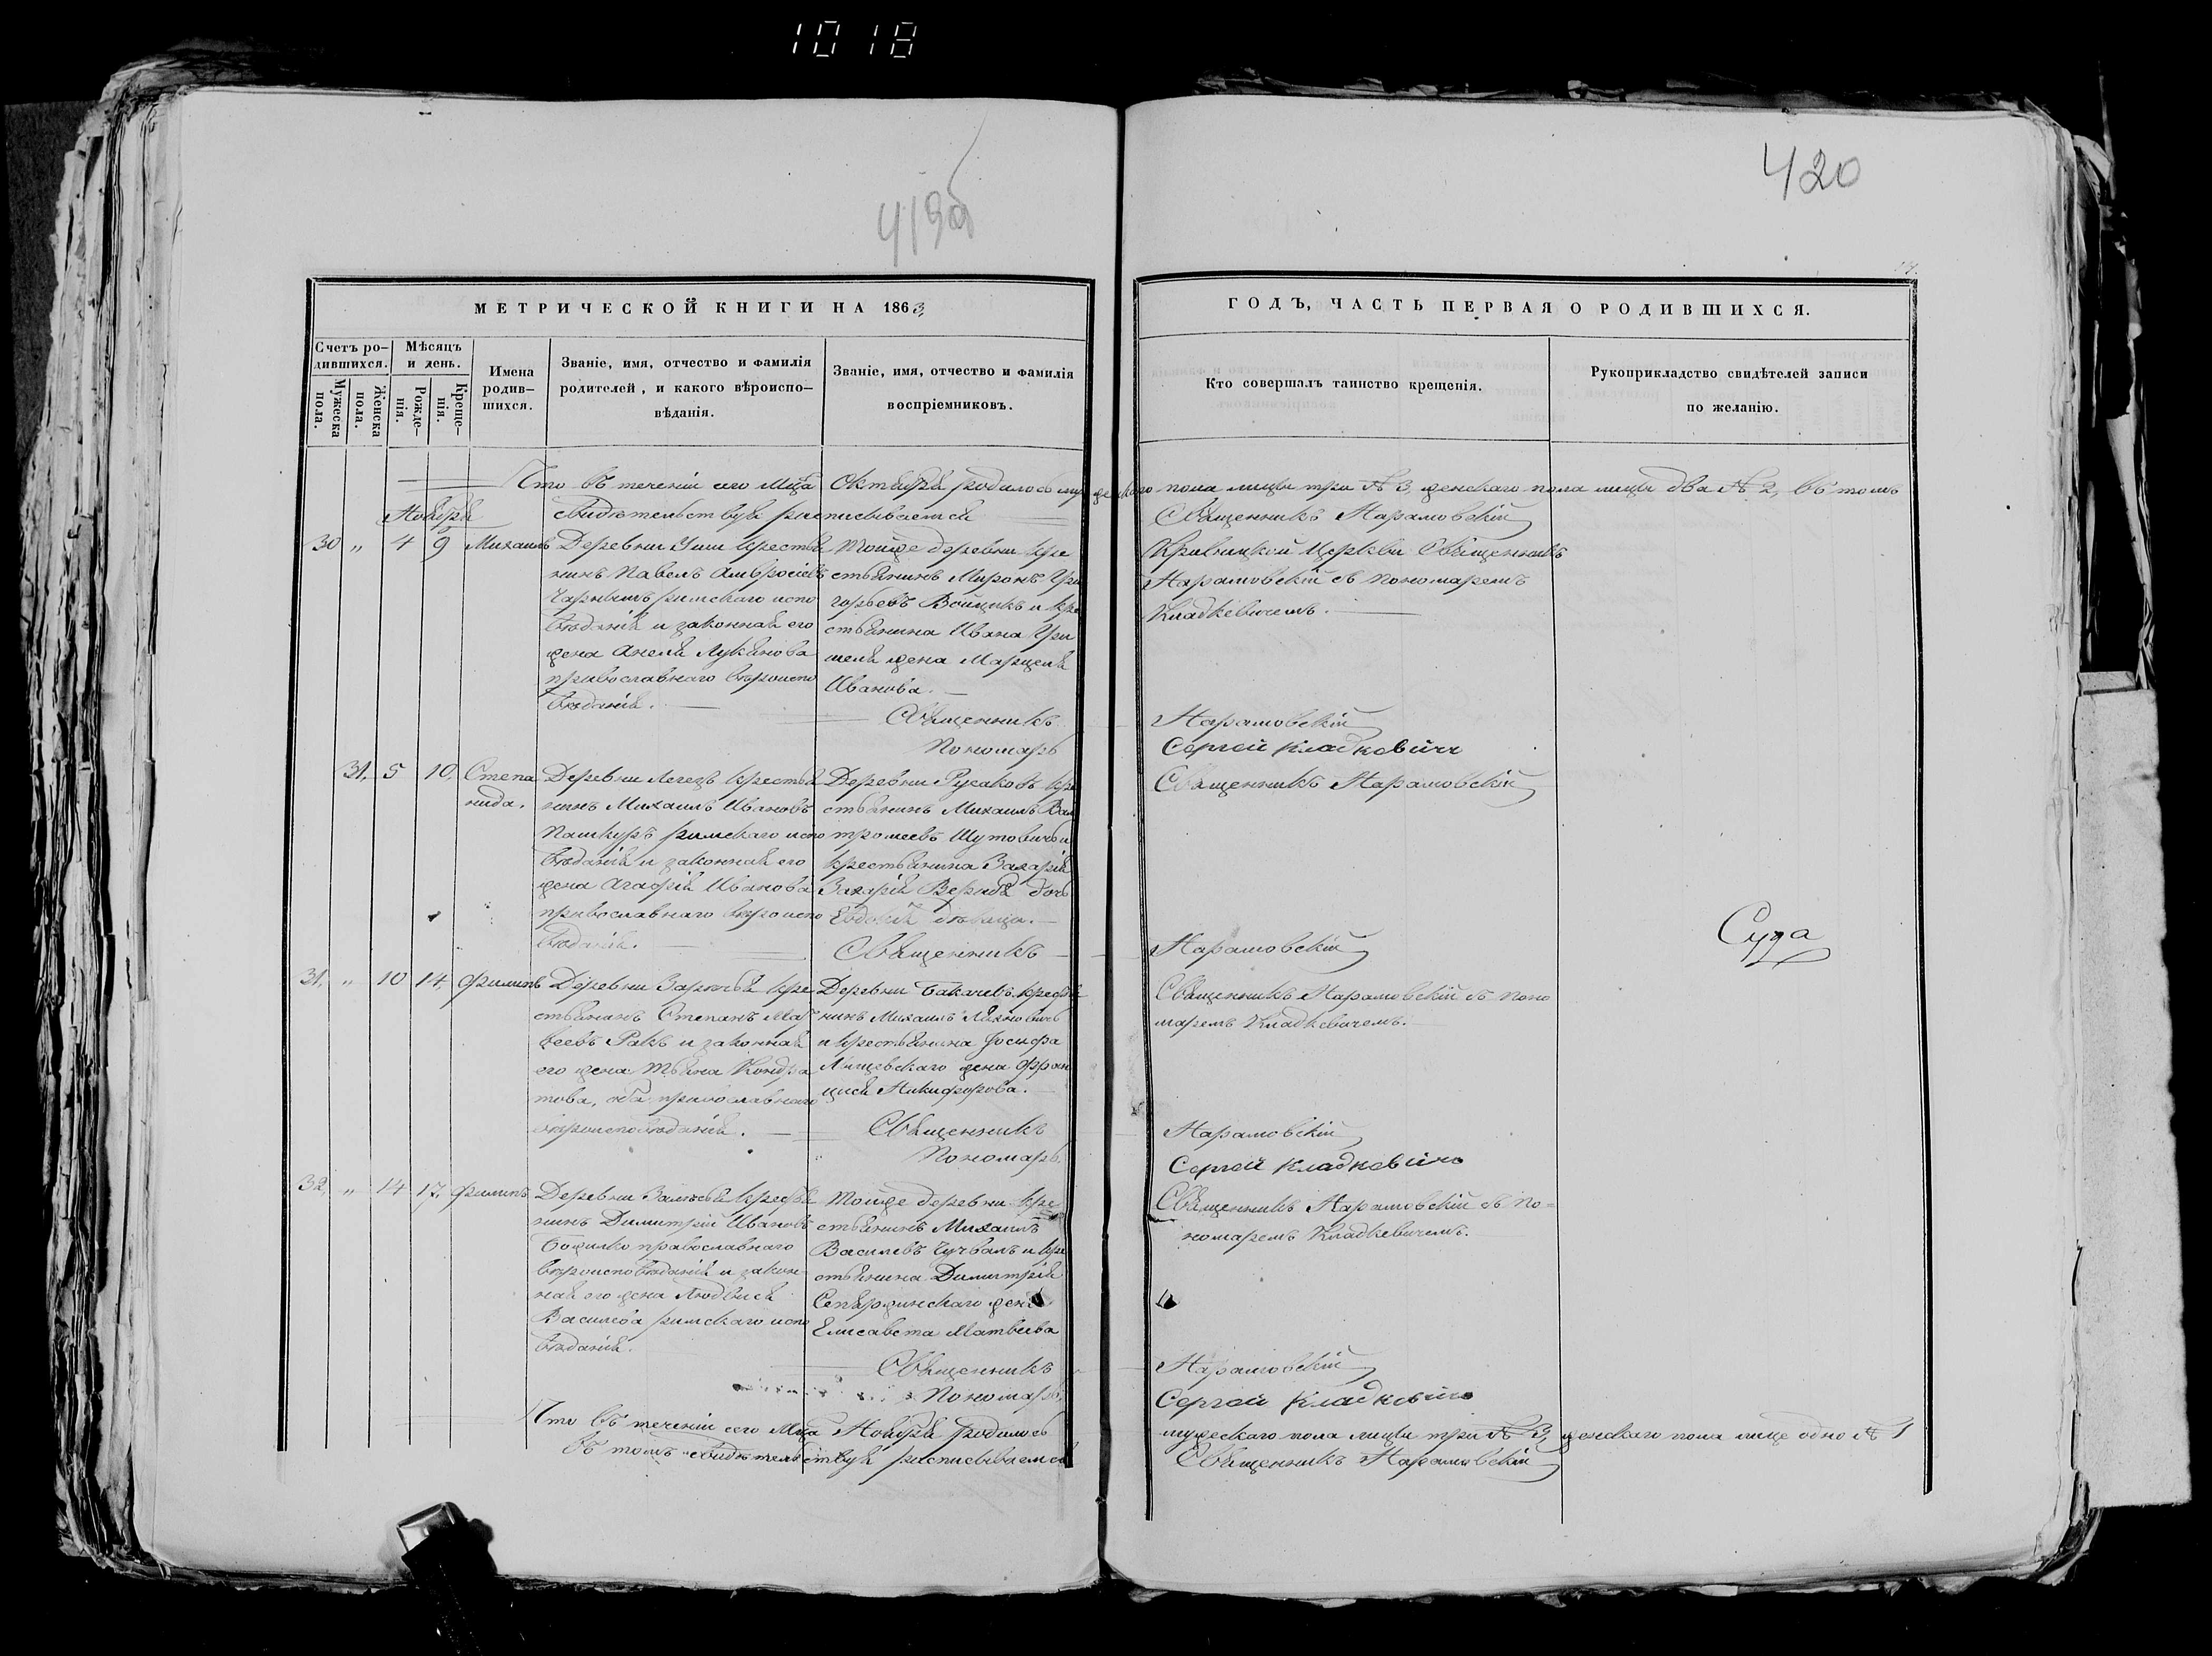 1018
419об
420
МЕТРИЧЕСКОЙ КНИГИ НА 1863,
ГОДЪ, ЧАСТЬ ПЕРВАЯ О РОДИВШИХСЯ.
Счетъ ро-
дившихся.
Мужеска
пола.
Женска
пола.
Мѣсяцъ
и день.
Рожде-
нія.
Креще-
нія.
Имена
родив-
шихся.
Званіе, имя, отчество и фамилія
родителей, и какого вѣроиспо-
вѣданія.
Званіе, имя, отчество и фамилія
воспріемниковъ.
Кто совершалъ таинство крещенія.
Рукоприкладство свидѣтелей записи
по желанію.
Что въ теченіи сего Мца Октября родилось мужескаго пола лицъ три № 3, женскаго пола лицъ два № 2, въ томъ
Ноября
свидѣтельствуя расписываемся
Священникъ Нарамовскій
30 " 4 9 Михаилъ
Деревни Уши крестья
нинъ Павелъ Амвросіевъ
римскаго испо
вѣданія и законная его
жена Анеля Лукянова
православнаго вѣроиспо
вѣданія.
Тойже деревни кре
стьянинъ Миронъ Гри
горьевъ Войцикъ и кре
стьянина Ивана Гри
меля жена Марцеля
Иванова.
Священникъ
Пономарь
Кривицкой Церкви Священникъ
Нарамовскій съ пономаремъ
Кладкевичемъ.
Нарамовскій
Сергей Кладкевичъ
31, 5 10, Степа
нида.
Деревни Легезъ крестья
нинъ Михаилъ Ивановъ
Пашкуръ римскаго испо
вѣданія и законная его
жена Агафія Иванова
православнаго вѣроиспо
вѣданія.
Деревни Русаковъ кре
стьянинъ Михаилъ Вар
тромеевъ Шутовичъ и
крестьянина Захарія
Захарія дочь
Евдокія дѣвица.
Священникъ
Священникъ Нарамовскій
Нарамовскій
31, " 10 14, Филипъ
Деревни Зарѣчья кре
стьянинъ Степанъ Мат
веевъ Ракъ и законная
его жена Тьяна Кондра
това, оба православнаго
вѣроисповѣданія.
Деревни крестья
нинъ Михаилъ Ляхновичъ
и крестьянина Іосифа
жена Фран
цися Никифорова.
Священникъ
Пономарь.
Священникъ Нарамовскій съ поно
маремъ Кладкевичемъ.
Нарамовскій
Сергей Кладкевичъ
32, " 14 17, Филипъ
Деревни крестья
нинъ Димитрій Ивановъ
Божилко православнаго
вѣроисповѣданія и закон
ная его жена Людвися
Василева римскаго испо
вѣданія.
Тойже деревни кре
стьянинъ Михаилъ
Василевъ и кре
стьянина Димитрія
жена
Елисавета Матвеева
Священникъ
Пономарь.
Священникъ Нарамовскій съ по=
номаремъ Кладкевичемъ.
Нарамовскій
Сергей Кладкевичъ
Что въ теченіи сего Мца Ноября родилось мужескаго пола лицъ три № 3, женскаго пола лице одно № 1
въ томъ свидѣтельствуя расписываемся
Священникъ Нарамовскій